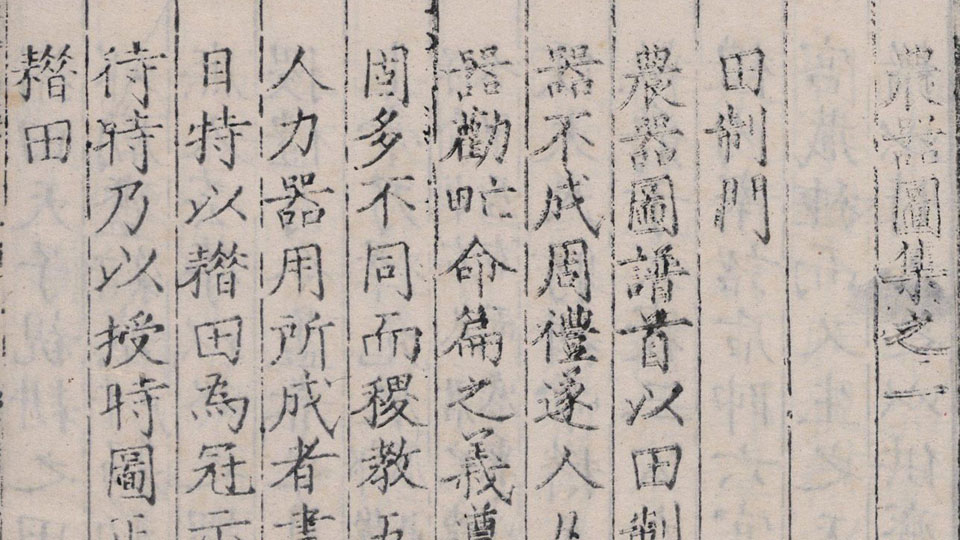 農器圖集之一
田制門
農器圖譜首以田制
器不成周禮遂人凡
器勸甿命篇之義遵
固多不同而稷教五
人力器用所成者書
自特以耤田為冠示
待時乃以授時圖正
耤田